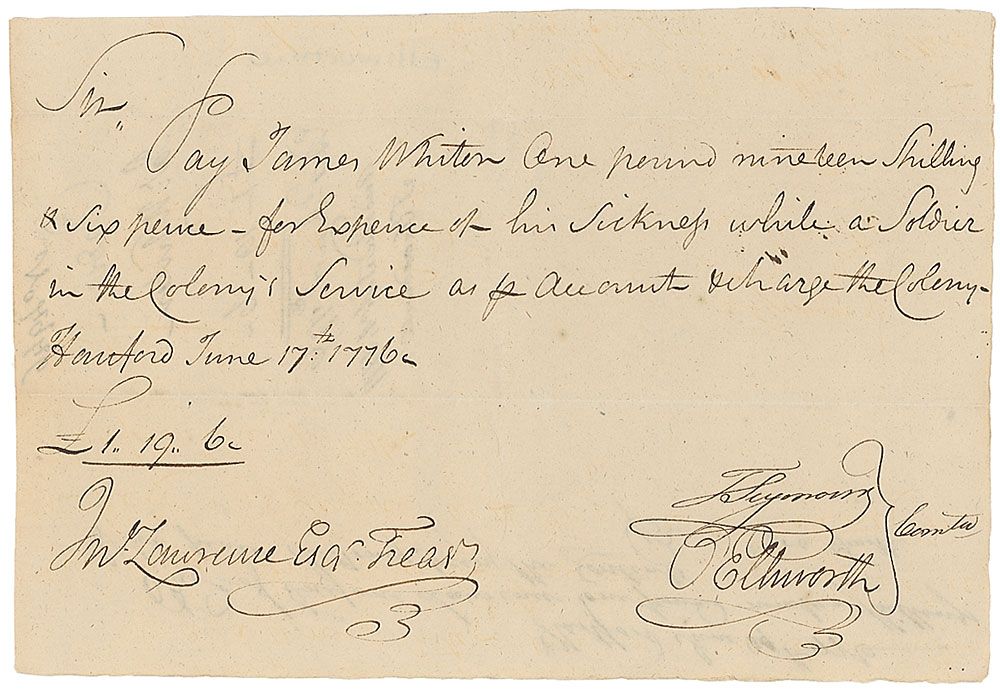 Sir,,
Pay James Whiton One pound nineteen Shilling
& Six pence – for Expence of his Sickness while a Soldier
in the Colony's Service as ⅌ Account & charge the Colony –
Hartford June 17:th 1776
£1,, 19,, 6
T Seymour
Comtee
O Ellsworth
Jno Lawrence Esqr Treasr